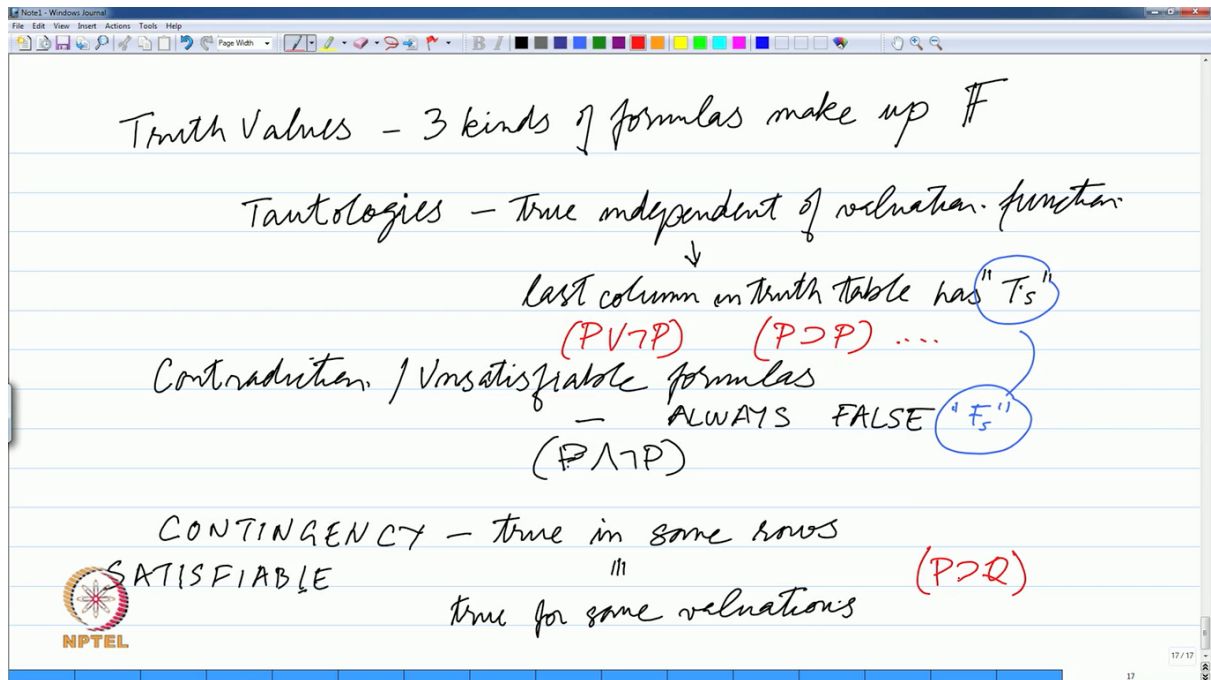 Note1 - Windows Journal
File Edit View Insert Actions Tools Help
Page Width
B I
Truth Values - 3 kinds of formulas make up 𝔽
Tautologies - true independent of valuation function
↓
last column in truth table has "T's"
(P∨¬P) (P⊃P) ....
Contradiction / Unsatisfiable formulas
- ALWAYS FALSE "Fs"
(P∧¬P)
CONTINGENCY - true in some rows
SATISFIABLE (P⊃Q)
true for some valuations
NPTEL
17 / 17
17